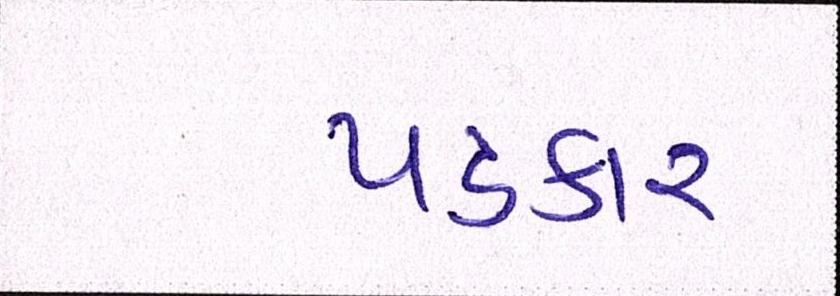 પડકાર